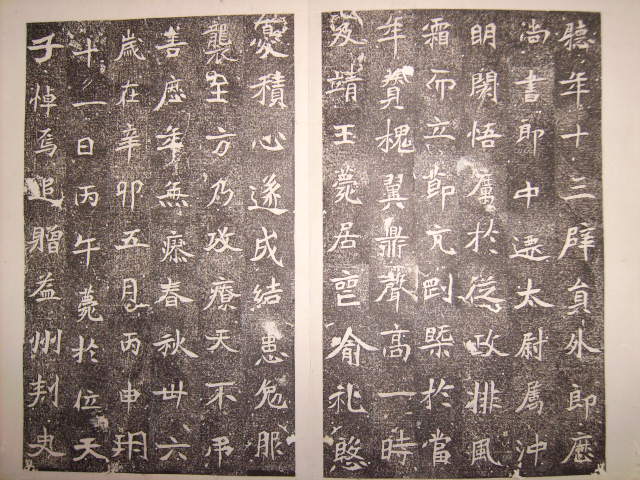 聽年十三辟員外郎歷
尚書郎中遷太尉属沖
明悟厲於從政排風
霜而立節亢剴槩於當
年賛槐翼鼎聲高一時
及靖王薨居喪踰礼慜
憂積心遂成結患勉服
襲王方乃攻療天不弔
善歷年無瘳春秋卅六
歲在辛卯五月丙申朔
十一日丙午薨於位天
子悼焉追贈益州刺史